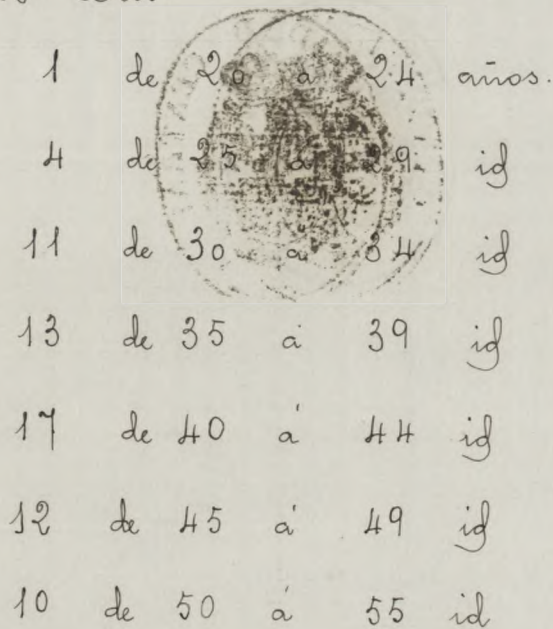 1 de 20 a 24 años.
4 de 25 a 29 id
11 de 30 a 34 id
13 de 35 á 39 id
17 de 40 á 44 id
12 de 45 á 49 id
10 de 50 á 55 id